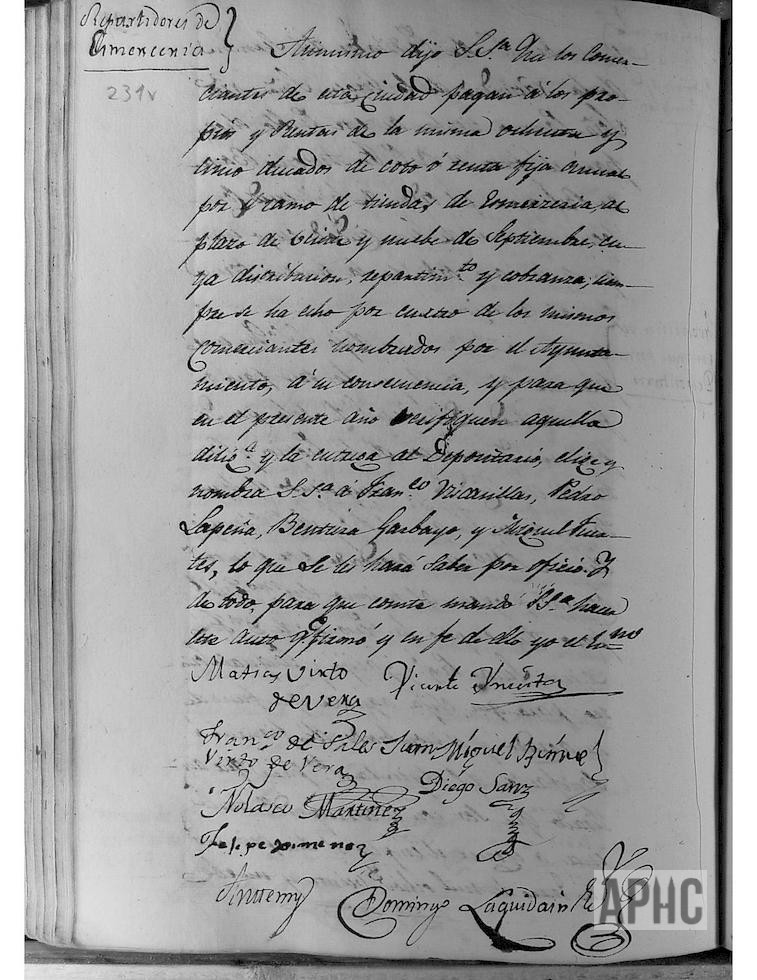 Repartidores de
Almercenia
231v
Asimismo dijo S.Sª. los Comer-
ciantes de esta Ciudad pagan á los pro-
pios y Rentas de la misma ochenta y
cinco ducados de coto ó renta fija anual
por ramo de tiendas de al
plazo de veinte y nuebe de Septiembre, cu-
ya distribucion, repartimto. y cobranza, siem-
pre se ha echo por cuatro de los mismos
comerciantes nombrados por el Ayunta-
miento, á su consecuencia, y para que
en el presente año verifiquen aquella
diligª. y la entrega al Depositario, elige y
nombra S.Sª. á Franco. Vicarillas, Pedro
Lapeña, Bentura Garbayo, y Miguel Fuer-
tes, lo que se les hará saber por oficio. Y
de todo, para que conste mandó S.Sª. hacer
este Auto q. firmó y en fe de ello yo el Sno.
Matias Virto
de Vera
Vicente
Franco. de Sales
Virto de Vera
Juan Miguel
Diego Sanz
Nolasco Martinez
Felipe Ximenez
Ante mi
Domingo Laquidain
APHC